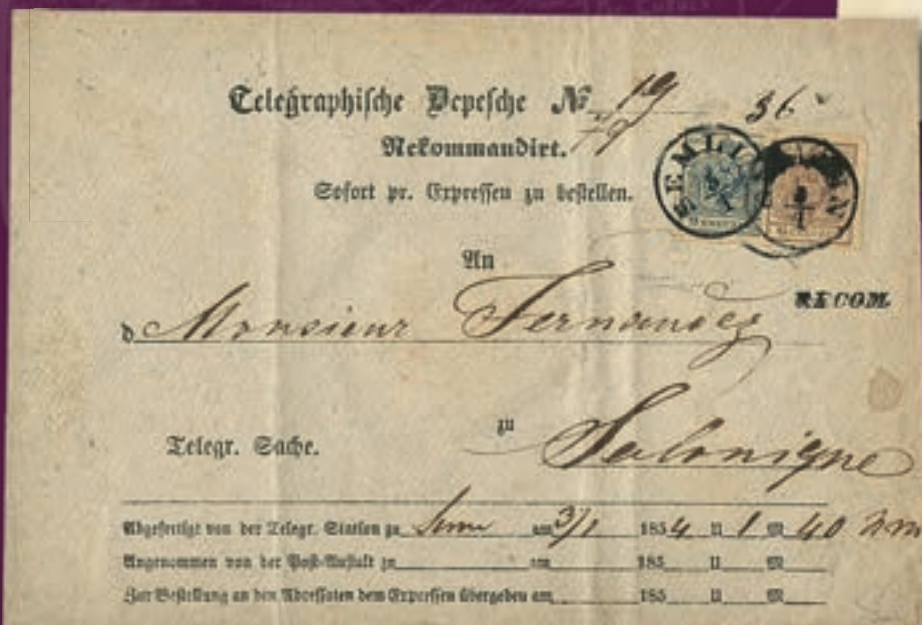 Telegraphische Depesche № 19 36
Rekommandirt.
Sofort pr. Expressen zu bestellen.
SEMLIN
An
RECOM.
d Monsieur Fernandez
zu Salonique
Telegr. Sache.
Abgefertigt von der Telegr. Station zu am 3/1 1854 U 1 M 40
Angenommen von der Post-Anstalt zu am 185 U M
Zur Bestellung an den Adressaten dem Expressen übergeben am 185 U M